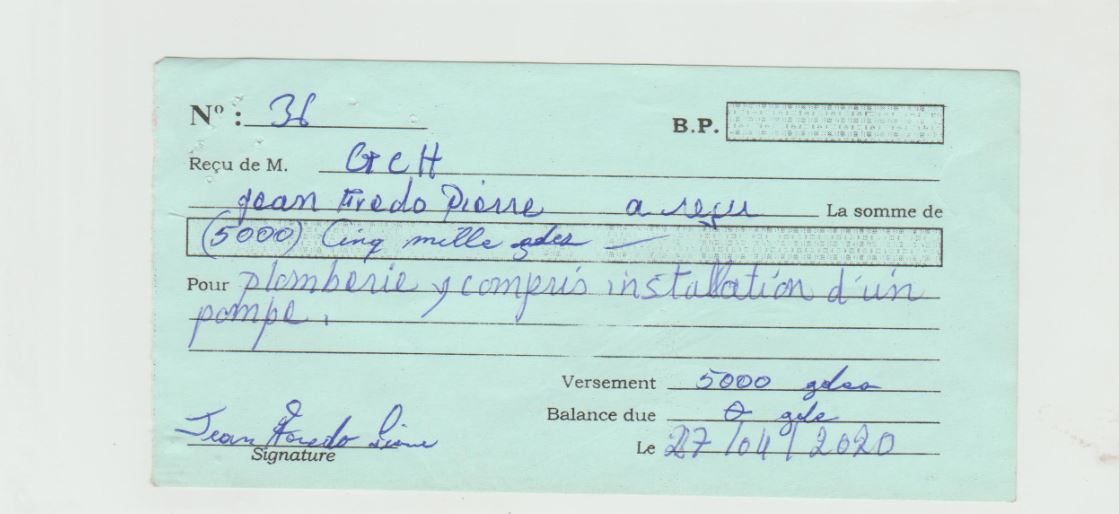 Nº : 36
B.P.
Reçu de M. GCH
Jean Fredo Pierre a reçu La somme de
(5000) Cinq mille gdes
Pour plomberie y compris installation d'un
pompe.
Versement 5000 gdes
Balance due 0 gde
Jean Fredo Pierre
Signature
Le 27/04/2020